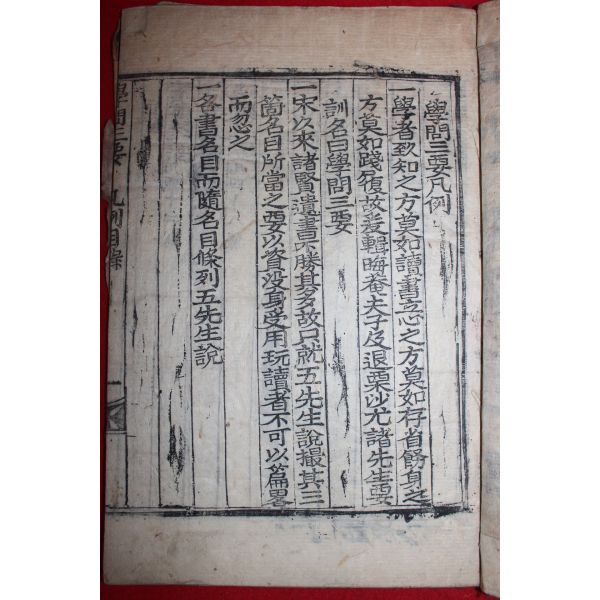 學問三要凡例
一學者致知之方莫如讀書立心之方莫如存省飭身之
方莫如踐履故爰輯晦菴夫子及退栗沙尤諸先生要
訓名曰學問三要
一宋以來諸賢遺書不勝其多故只就五先生說撮其三
箇名目所當之要以資沒身受用玩讀者不可以篇畧
而忽之
一各書名目而隨名目條列五先生說
學問三要 凡例目錄 一